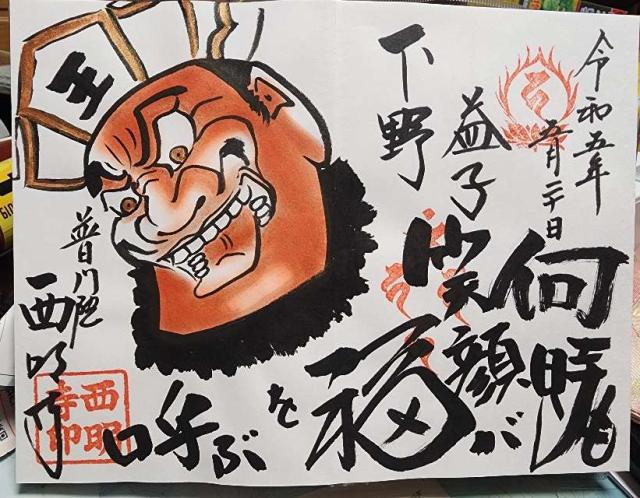 令和五年
五月二十日
下野
益子
何時も
笑顔が
福を
呼ぶ
王
普門院
西明寺
西明
寺印